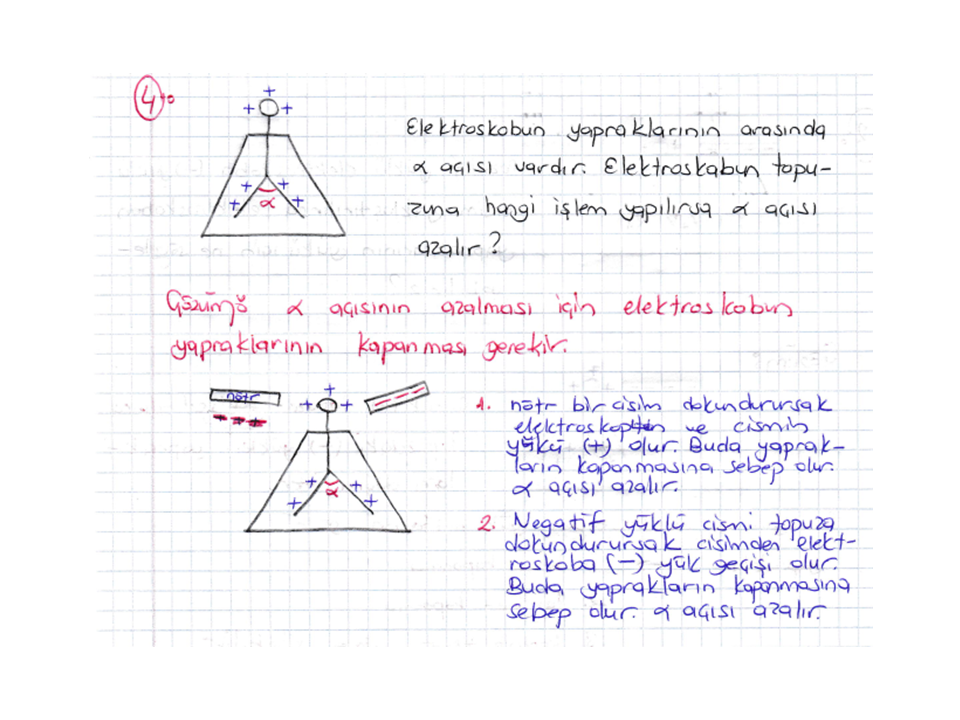 4.
Elektroskobun yapraklarının arasında
α açısı vardır. Elektroskabun topu-
zuna hangi işlem yapılırsa α açısı
azalır?
+ + +
+ + + +
α
Çözüm: α açısının azalması için elektroskobun
yapraklarının kapanması gerekir.
nötr
+ + +
+ + + +
α
1. nötr bir cisim dokundurursak
ve cismin
yükü (+) olur. Buda yaprak-
ların kapanmasına sebep olur.
α açısı azalır.
2. Negatif yüklü cismi topuza
dokundurursak cisimden elekt-
roskoba (-) yük geçişi olur.
Buda yaprakların kapanmasına
sebep olur. α açısı azalır.